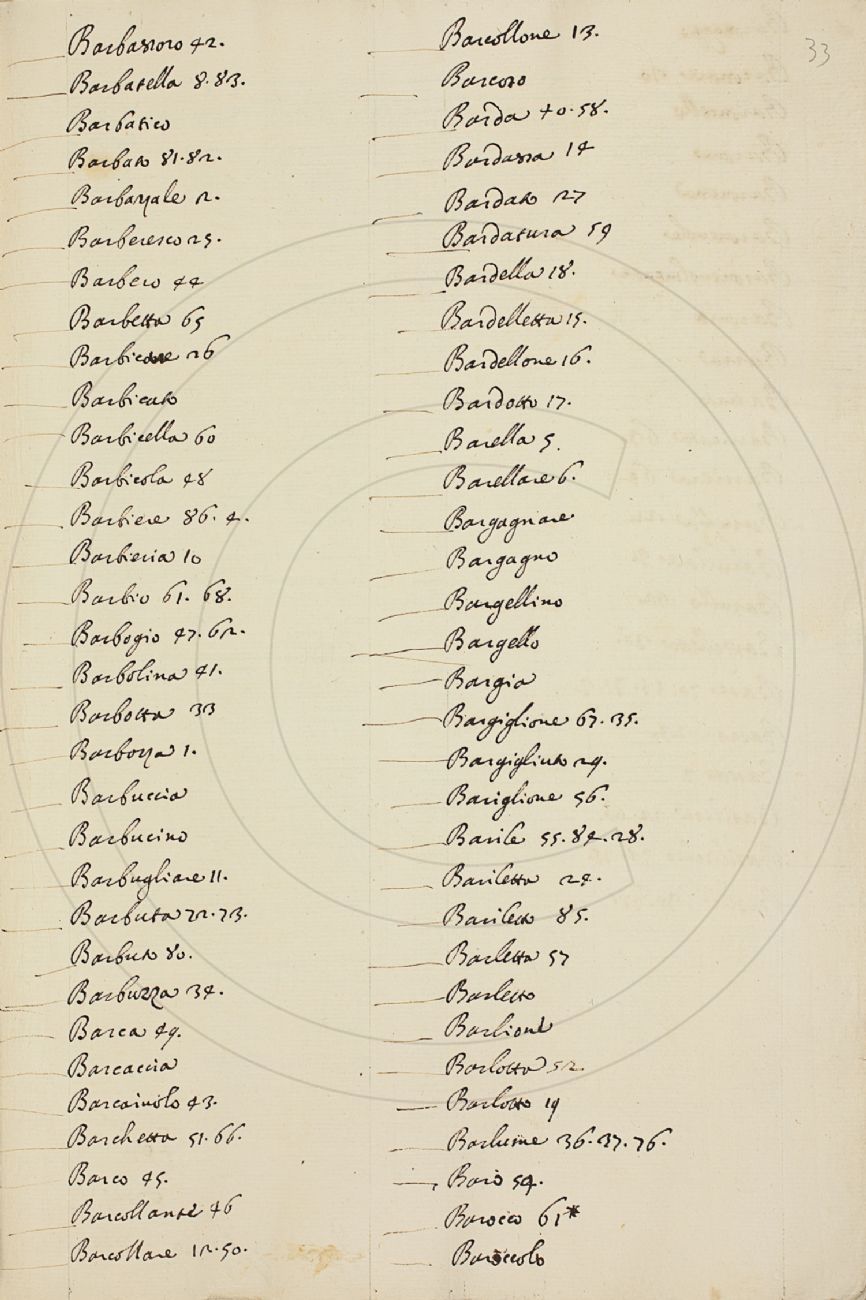 33
Barbassoro 42.
Barbatella 8.83.
Barbatico
Barbato 81.82.
Barbazzale 2.
Barberesco 25.
Barbero 44
Barbetta 65
Barbicone 26
Barbicuto
Barbicella 60
Barbicola 48
Barbiere 86. 4.
Barbieria 10
Barbio 61. 68.
Barbogio 47. 62.
Barbolina 41.
Barbotta 33
Barbozza 1.
Barbuccia
Barbucino
Barbugliare 11.
Barbuta 72.73.
Barbuto 80.
Barbuzza 34.
Barca 49.
Barcaccia
Barcaiuolo 43.
Barchetta 51.66.
Barco 45.
Barcollante 46
Barcollare 12.50.
Barcollone 13.
Barcoro
Barda 40.58.
Bardassa 14
Bardato 27
Bardatura 59
Bardella 18.
Bardelletta 15.
Bardellone 16.
Bardotto 17.
Barella 5.
Barellare 6.
Bargagnare
Bargagno
Bargellino
Bargello
Bargia
Bargiglione 67.35.
Bargigliuto 29.
Bariglione 56.
Barile 55.84.28.
Bariletta 24.
Bariletto 85.
Barletta 57
Barletto
Barlione
Barlotta 52.
Barlotto 19
Barlume 36.37.76.
Baro 54.
Barocco 61*
Baroccolo